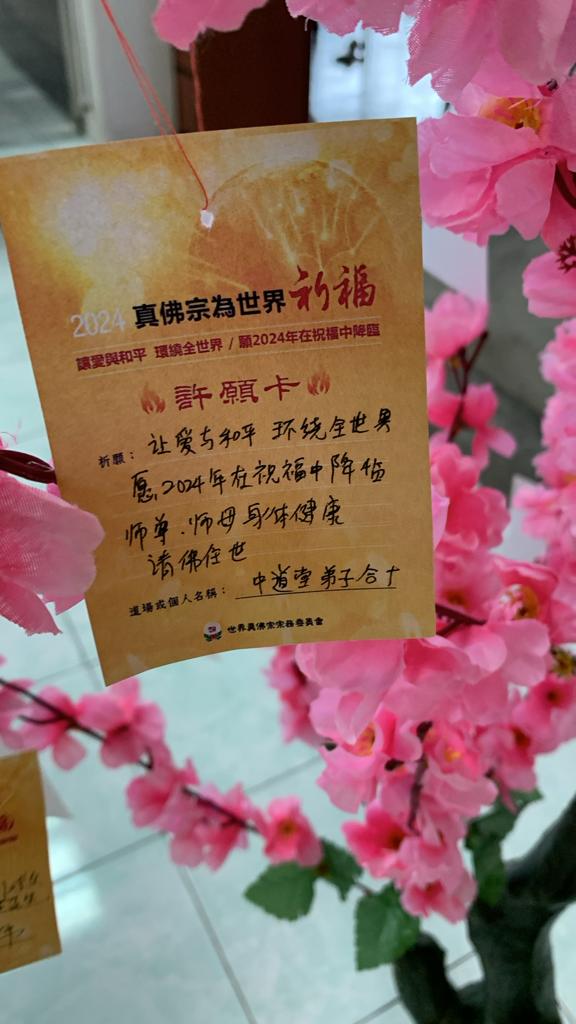 2024 真佛宗為世界祈福
讓愛與和平 環繞全世界 / 願2024年在祝福中降臨
許願卡
祈願：让爱与和平 环绕全世界
愿2024年在祝福中降临
师尊.师母身体健康
请佛住世
道場或個人名稱：中道堂弟子合十
世界真佛宗宗務委員會